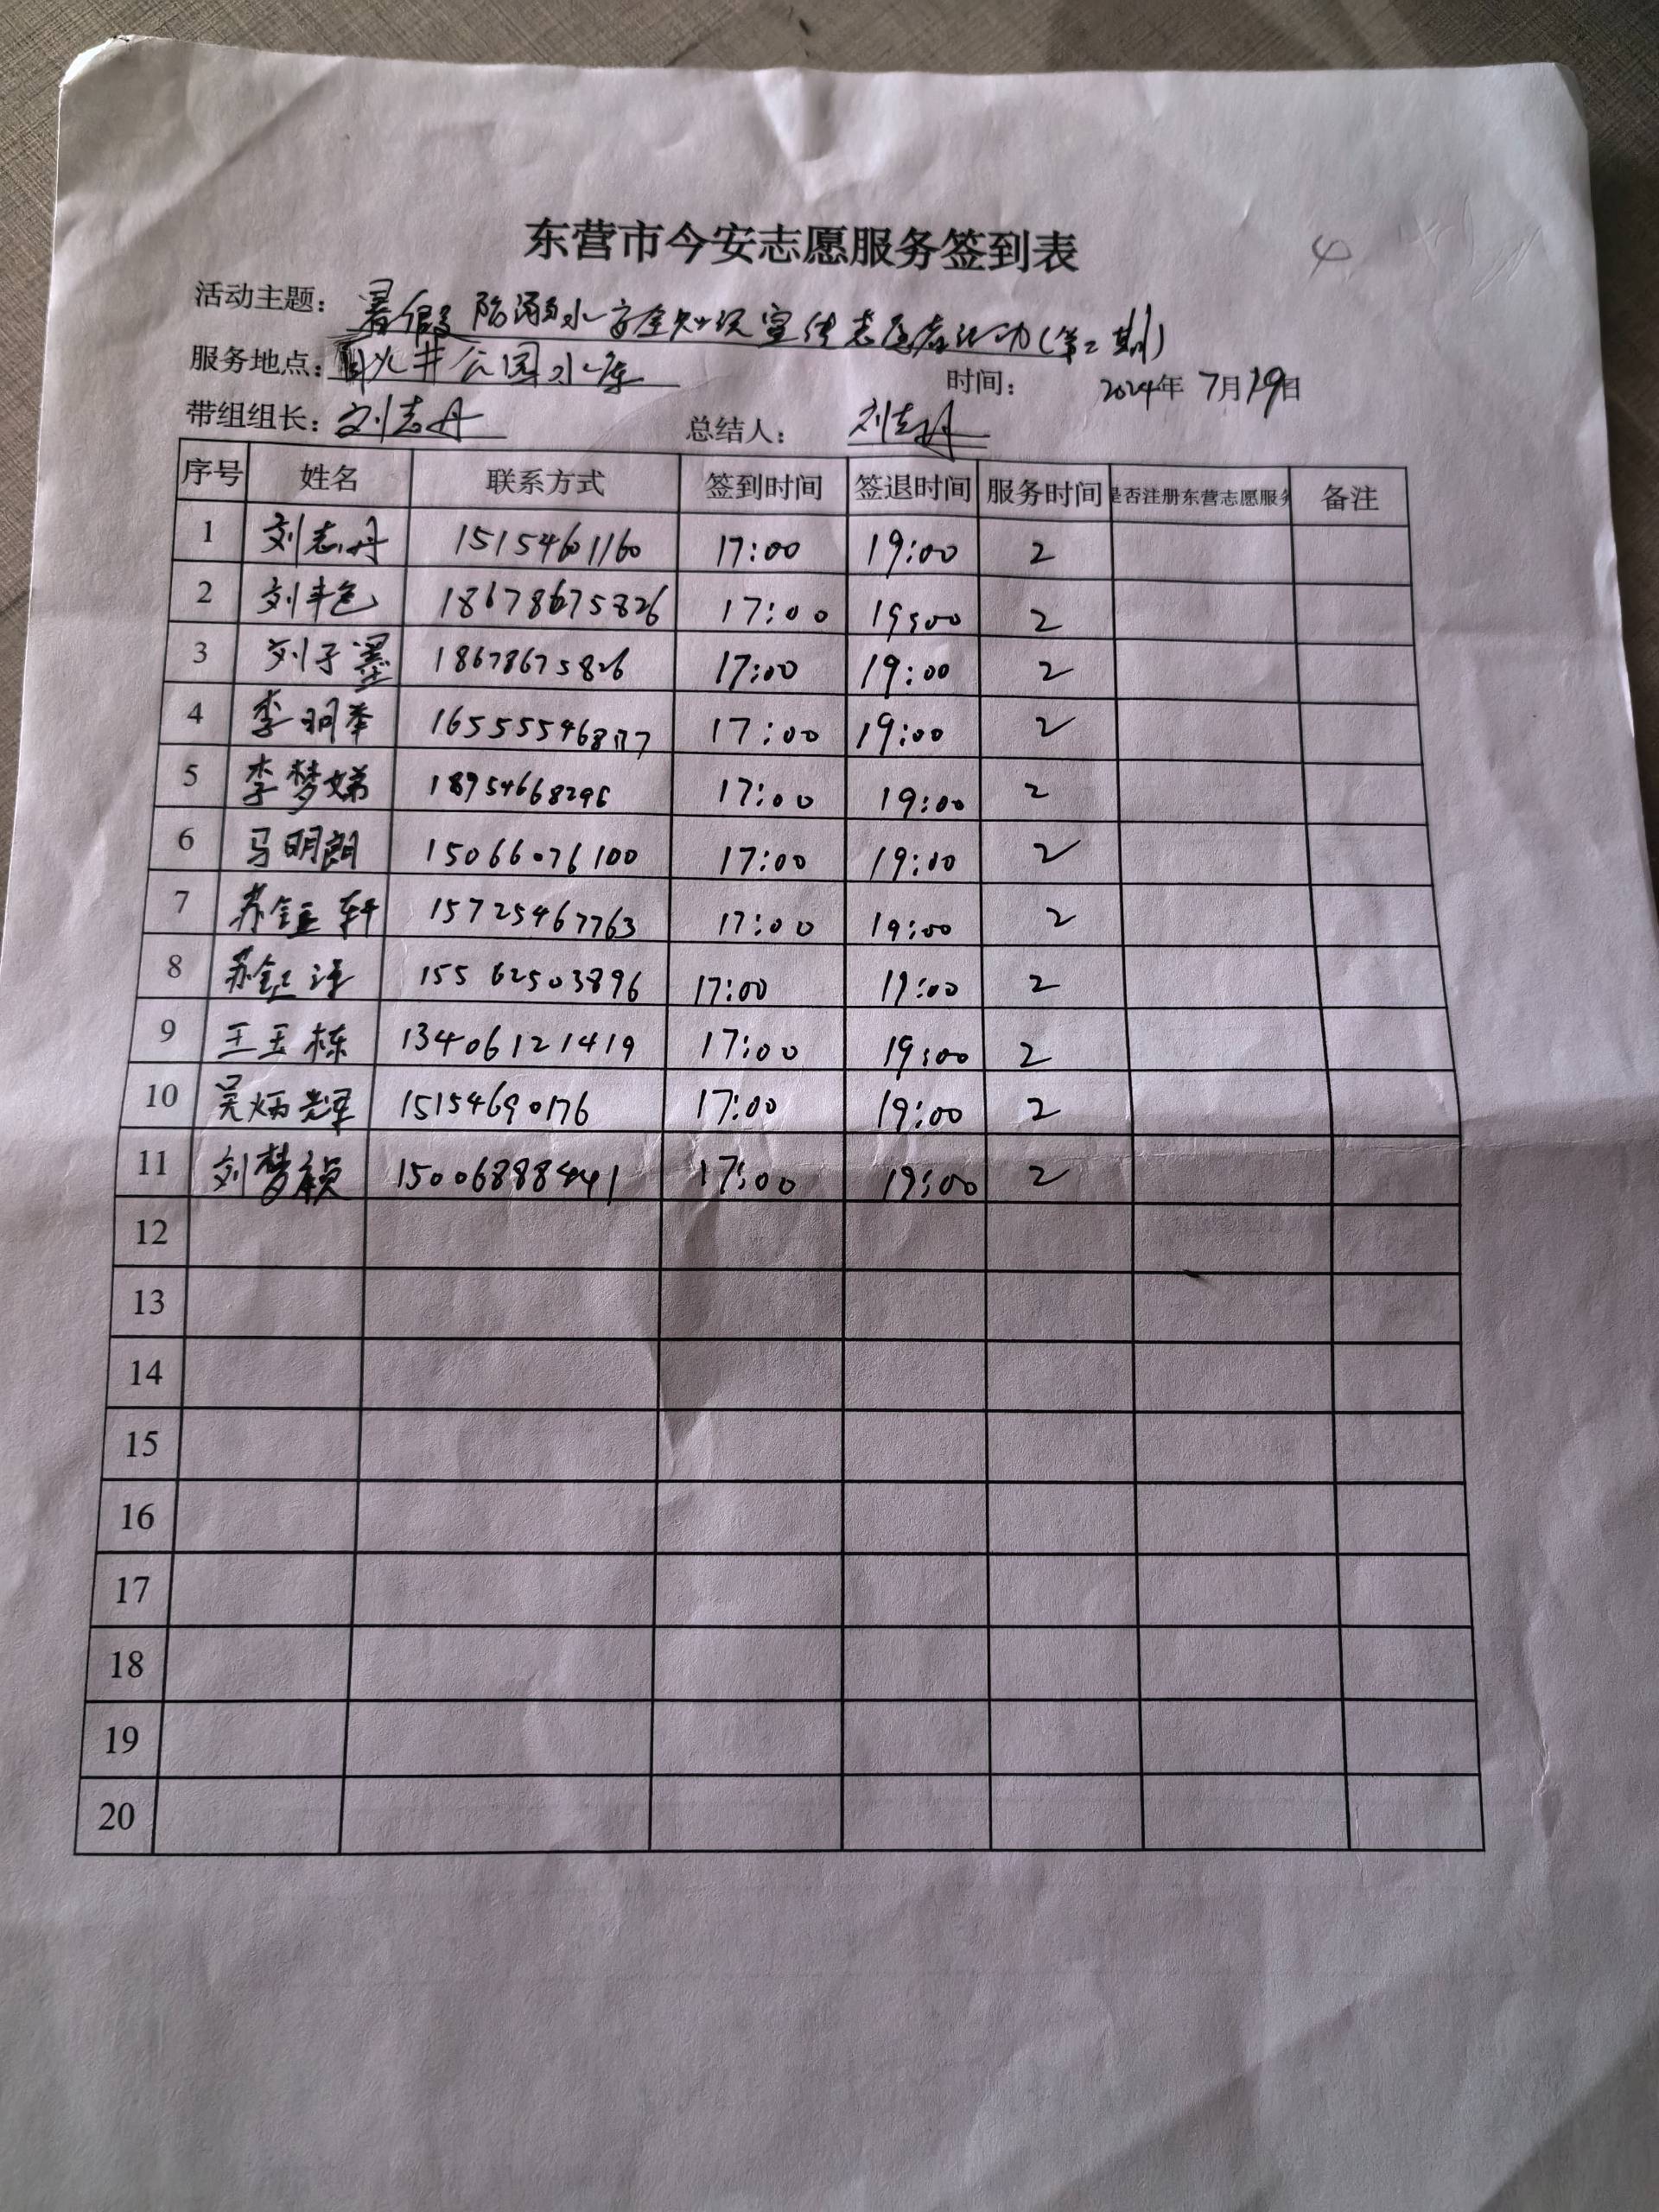 东营市今安志愿服务签到表
活动主题: 暑假防溺水安全知识宣传志愿者活动(第二期)
服务地点: 火井公园水库 时间: 2024年 7月19日
带组组长: 刘志丹 总结人: 刘志丹
序号 姓名 联系方式 签到时间 签退时间 服务时间 是否注册东营志愿服务 备注
1 刘志丹 15154601160 17:00 19:00 2
2 刘丰 18678675826 17:00 19:00 2
3 刘子墨 18678675826 17:00 19:00 2
4 李明举 17:00 19:00 2
5 李梦娣 18954668296 17:00 19:00 2
6 马明朗 15066076100 17:00 19:00 2
7 苏钰轩 15725467763 17:00 19:00 2
8 苏钰 15562503896 17:00 19:00 2
9 王玉栋 13406121419 17:00 19:00 2
10 吴炳辉 15154690176 17:00 19:00 2
11 刘梦颖 15006888441 17:00 19:00 2
12
13
14
15
16
17
18
19
20